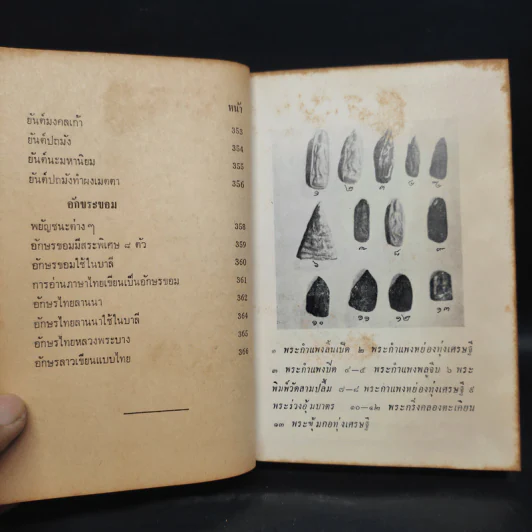 หน้า
ยันต์มงคลเก้า 353
ยันต์ปถมัง 354
ยันต์นะมหานิยม 355
ยันต์ปถมังทำผงเมตตา 356
อักขระขอม
พยัญชนะต่างๆ 358
อักษรขอมมีสระพิเศษ ๘ ตัว 359
อักษรขอมใช้ในบาลี 360
การอ่านภาษาไทยเขียนเป็นอักษรขอม 361
อักษรไทยลานนา 362
อักษรไทยลานนาใช้ในบาลี 364
อักษรไทยหลวงพระบาง 365
อักษรลาวเขียนแบบไทย 366
๑ ๒ ๓ ๔ ๕
๖ ๗ ๘ ๙
๑๐ ๑๑ ๑๒ ๑๓
๑ พระกำแพงลีบเบ็ด ๒ พระกำแพงหย่องทุ่งเศรษฐี
๓ พระกำแพงบีด ๔-๕ พระกำแพงพลูจีบ ๖ พระ
พิมพ์วัดสามปลื้ม ๗-๘ พระกำแพงหย่องทุ่งเศรษฐี ๙
พระร่วงอุ้มบาตร ๑๐-๑๒ พระกริ่งคลองตะเคียน
๑๓ พระซุ้มกอทุ่งเศรษฐี